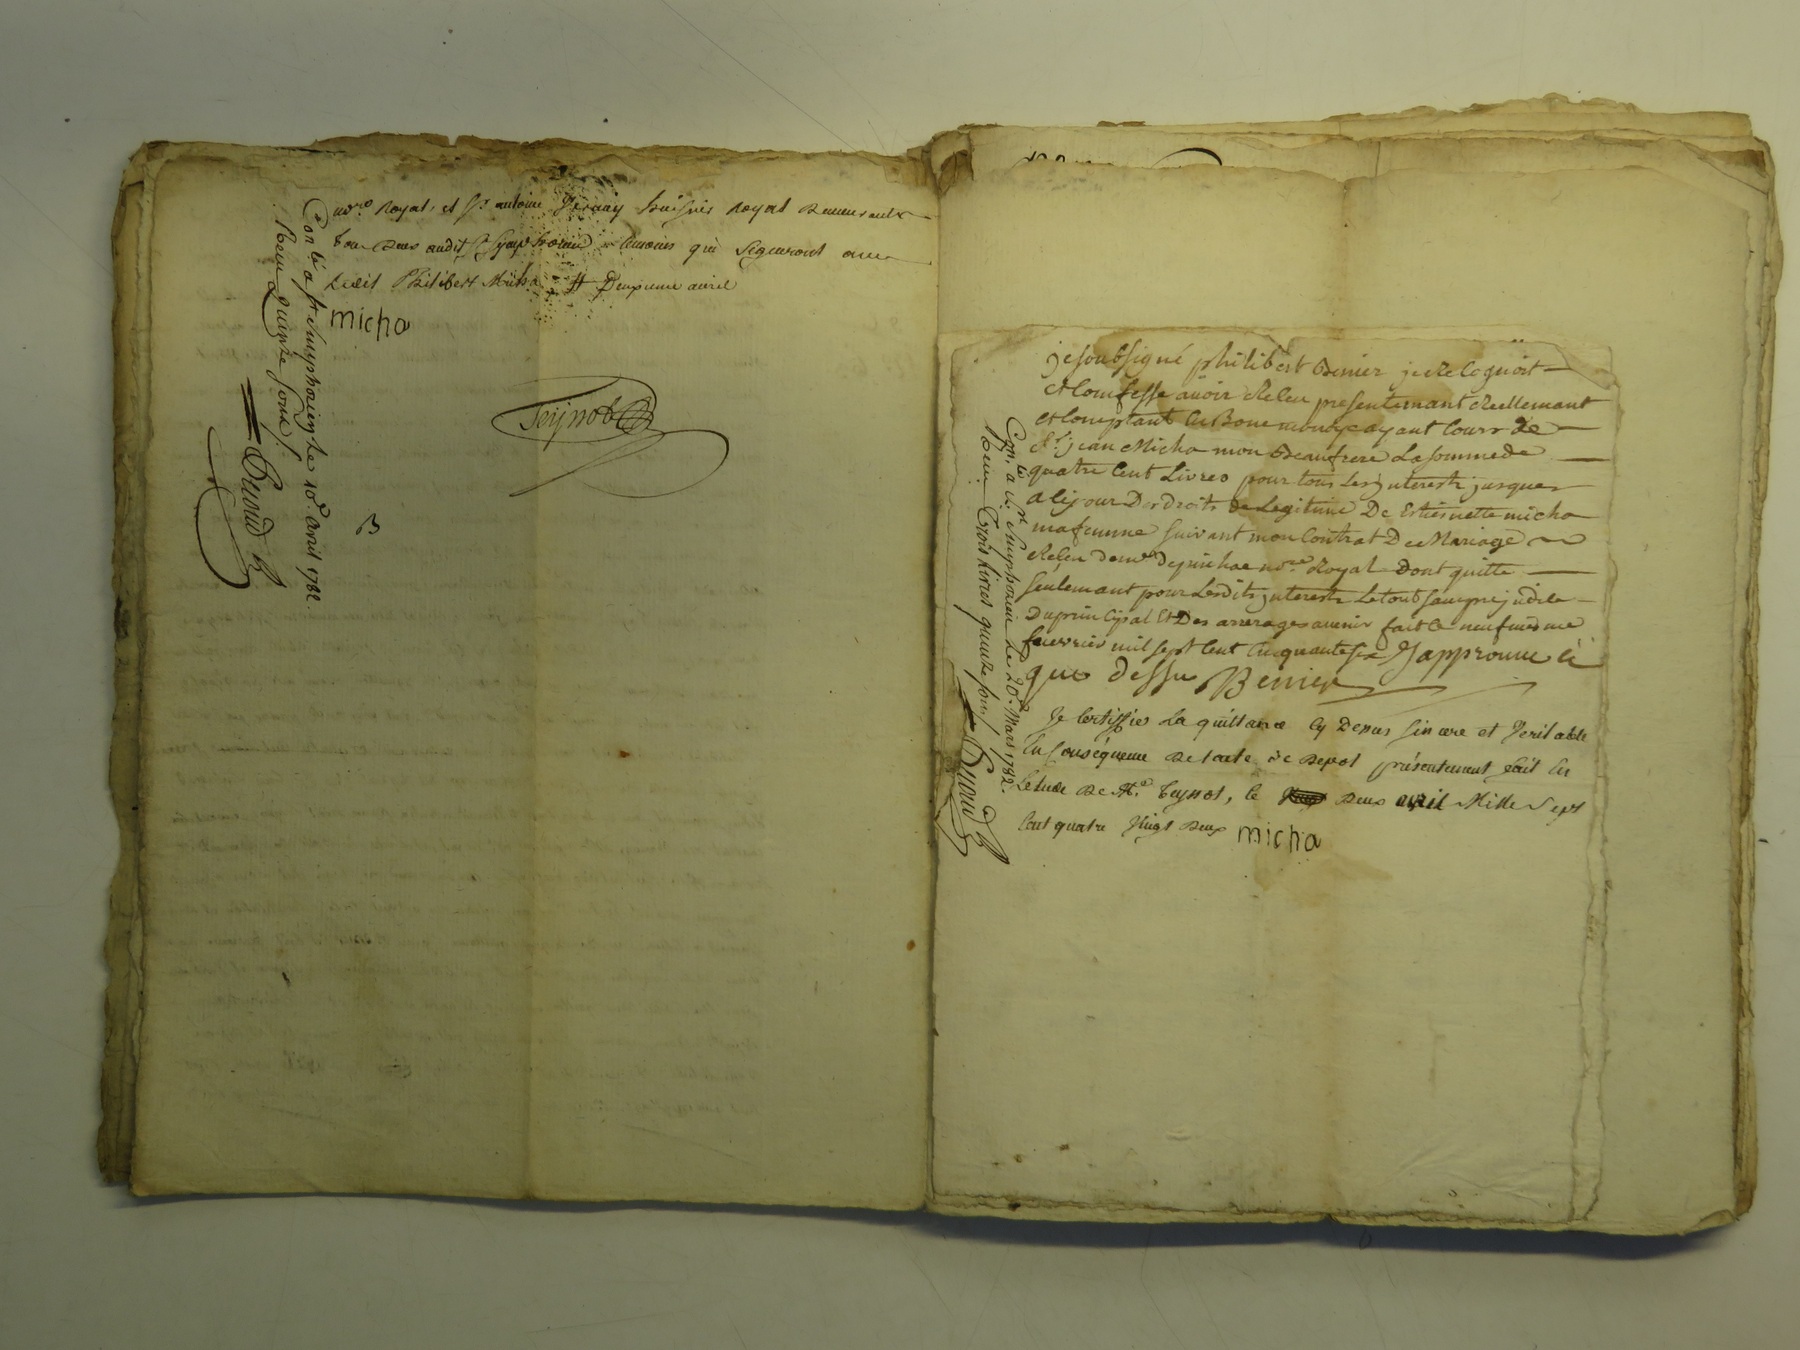 no.re Royal, et Sr antoine Huissier Royal demeurants
tous deux audit St Symphorien temoins qui signeront avec
ledit Philibert Micha # Deuxieme avril
micha
Teynot
Con.lé a St simphorien le 10e. avril 1782.
Receu quinze sous /.
Buoud
je soubsigné philibert Benier je Relognoit
et Comfesse avoir Releu presentemant Reellemant
et Comptant en Bone monoye ayant Cours de
Sr jean Micha mon Beaufrere La Somme de
quatre Cent Livres pour tous Les jnterest jusques
a Cejour Des droits de Legitime De Estiennette micha
ma femme suivant mon Contrat De Mariage
Releu de me no.re Royal Dont quitte
seulemant pour Lesdits jnterests Le tout sans prejudice
Du principal Et Des arrerages avenir fait le neufviesme
fauvrier mil sept Cent Cinquante six Japprouve Ce
que dessu Benier
Je Certiffie La quittance Cy Dessus sincere et Veritable
En Consequence De l'acte de Depot présentement fait En
L'etude De Me. Teynot, le Deux avril Mille Sept
Cent quatre Vingt Deux micha
Con.lé a St. Simphorien Le 20e. Mars 1782.
Receu trois Livres quinze sous /.
Buoud